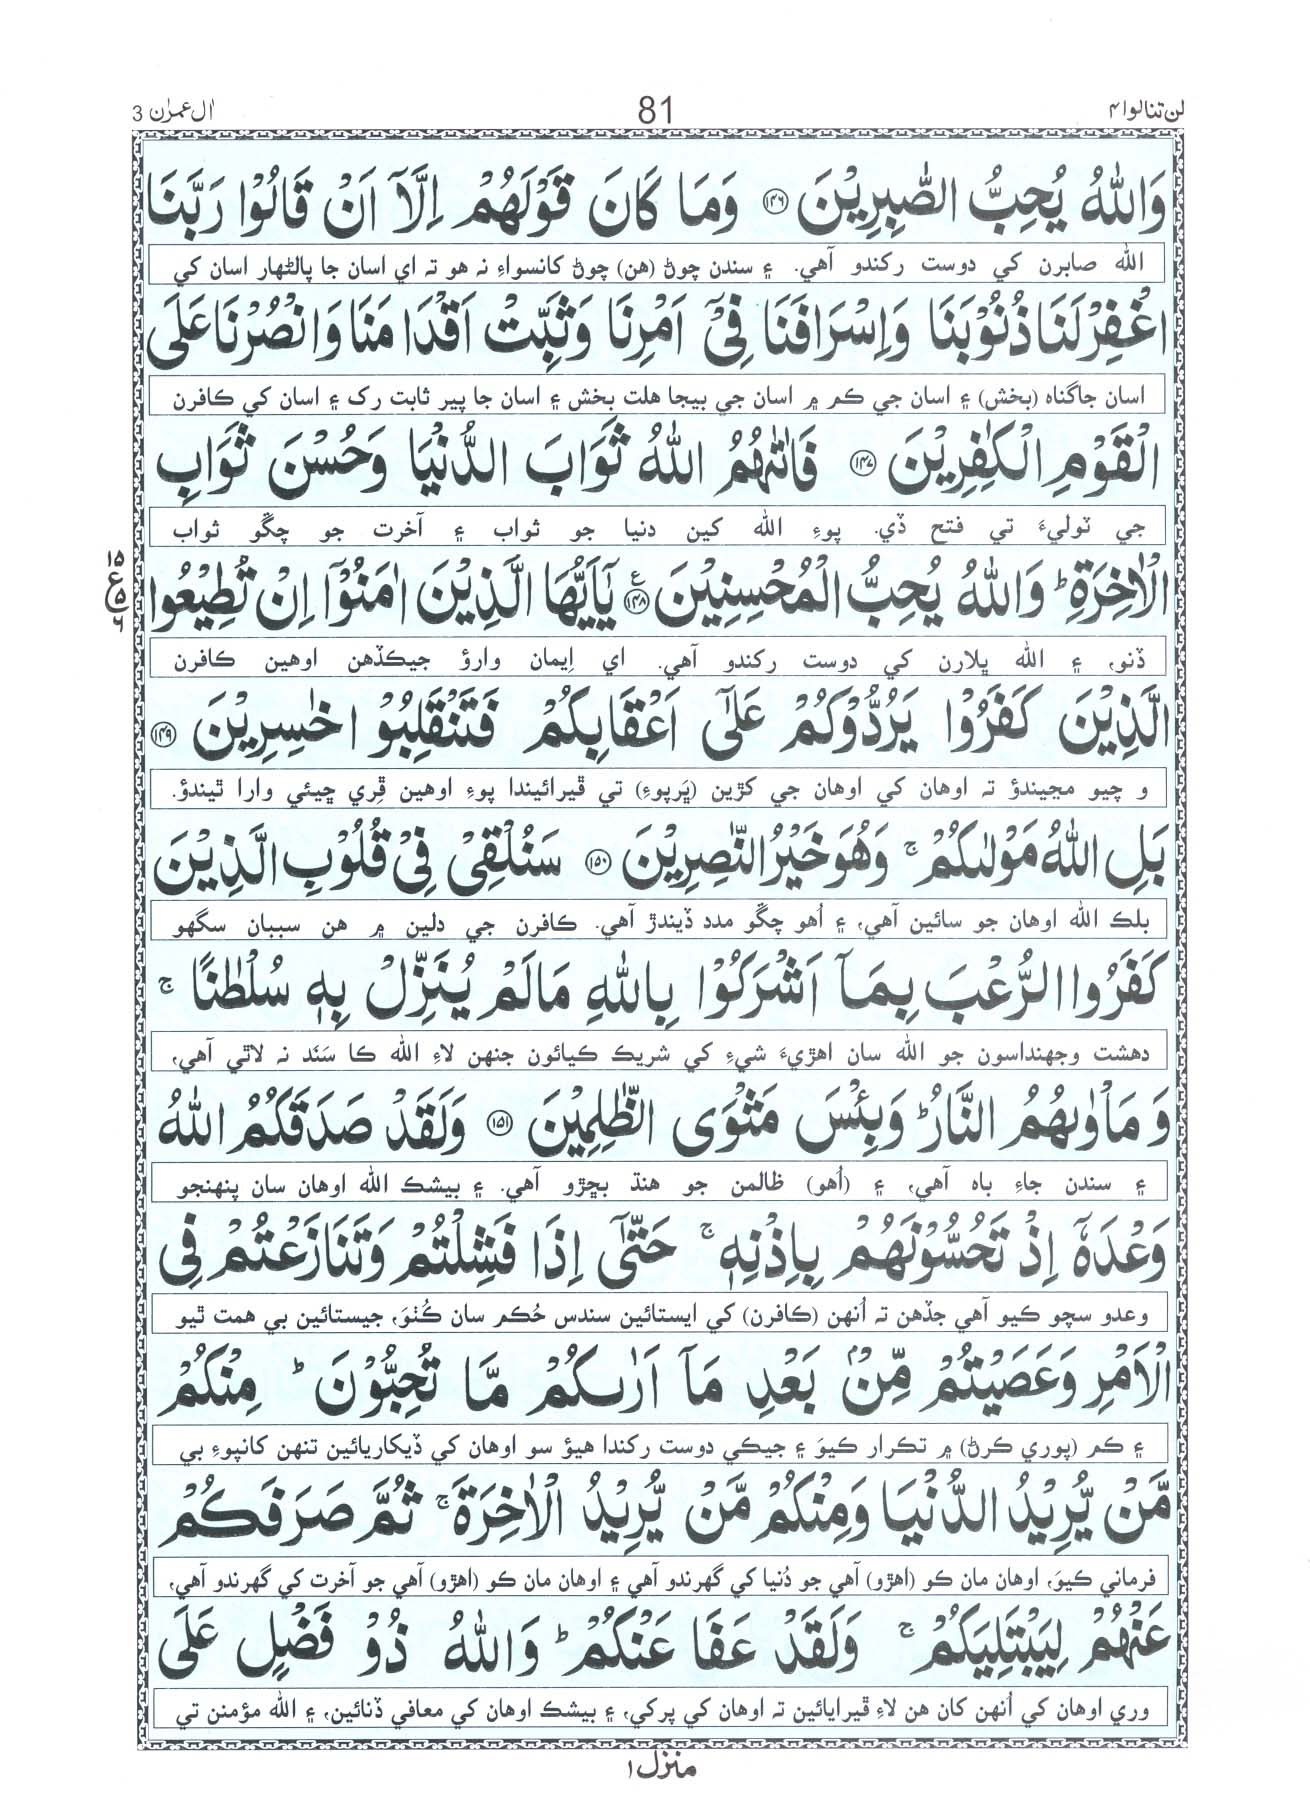 لن تنالوا ۴
81
اٰل عمرٰن 3
وَاللّٰهُ يُحِبُّ الصّٰبِرِيْنَ ۝۱۴۶ وَمَا كَانَ قَوْلَهُمْ اِلَّاۤ اَنْ قَالُوْا رَبَّنَا
الله صابرن کي دوست رکندو آهي. ۽ سندن چوڻ (هن) چوڻ کانسواءِ نہ هو تہ اي اسان جا پالڻهار اسان کي
اغْفِرْ لَنَا ذُنُوْبَنَا وَاِسْرَافَنَا فِيْۤ اَمْرِنَا وَثَبِّتْ اَقْدَامَنَا وَانْصُرْنَا عَلَى
اسان جاگناه (بخش) ۽ اسان جي ڪم ۾ اسان جي بيجا هلت بخش ۽ اسان جا پير ثابت رک ۽ اسان کي ڪافرن
الْقَوْمِ الْكٰفِرِيْنَ ۝۱۴۷ فَاٰتٰىهُمُ اللّٰهُ ثَوَابَ الدُّنْيَا وَحُسْنَ ثَوَابِ
جي ٽوليءَ تي فتح ڏي. پوءِ الله کين دنيا جو ثواب ۽ آخرت جو چڱو ثواب
الْاٰخِرَةِ ؕ وَاللّٰهُ يُحِبُّ الْمُحْسِنِيْنَ ۝۱۴۸ ع يٰۤاَيُّهَا الَّذِيْنَ اٰمَنُوْۤا اِنْ تُطِيْعُوا
۱۵ ع ۵ ۶
ڏنو، ۽ الله ڀلارن کي دوست رکندو آهي. اي اِيمان وارؤ جيڪڏهن اوهين ڪافرن
الَّذِيْنَ كَفَرُوْا يَرُدُّوْكُمْ عَلٰۤى اَعْقَابِكُمْ فَتَنْقَلِبُوْا خٰسِرِيْنَ ۝۱۴۹
و چيو مڃيندؤ تہ اوهان کي اوهان جي کڙين (ڀَرپوءِ) تي ڦيرائيندا پوءِ اوهين ڦِري ڇيئي وارا ٿيندؤ.
بَلِ اللّٰهُ مَوْلٰىكُمْ ۚ وَهُوَ خَيْرُ النّٰصِرِيْنَ ۝۱۵۰ سَنُلْقِيْ فِيْ قُلُوْبِ الَّذِيْنَ
بلڪ الله اوهان جو سائين آهي، ۽ اُهو چڱو مدد ڏيندڙ آهي. ڪافرن جي دلين ۾ هن سببان سگهو
كَفَرُوا الرُّعْبَ بِمَاۤ اَشْرَكُوْا بِاللّٰهِ مَا لَمْ يُنَزِّلْ بِهٖ سُلْطٰنًا ۚ
دهشت وجهنداسون جو الله سان اهڙيءَ شيءِ کي شريڪ ڪيائون جنهن لاءِ الله ڪا سَنَد نہ لاٿي آهي،
وَمَاْوٰىهُمُ النَّارُ ؕ وَبِئْسَ مَثْوَى الظّٰلِمِيْنَ ۝۱۵۱ وَلَقَدْ صَدَقَكُمُ اللّٰهُ
۽ سندن جاءِ باه آهي، ۽ (اُهو) ظالمن جو هنڌ بڇڙو آهي. ۽ بيشڪ الله اوهان سان پنهنجو
وَعْدَهٗۤ اِذْ تَحُسُّوْنَهُمْ بِاِذْنِهٖ ۚ حَتّٰۤى اِذَا فَشِلْتُمْ وَتَنَازَعْتُمْ فِي
وعدو سچو ڪيو آهي جڏهن تہ اُنهن (ڪافرن) کي ايستائين سندس حُڪم سان ڪُٺوَ، جيستائين بي همت ٿيو
الْاَمْرِ وَعَصَيْتُمْ مِّنْۢ بَعْدِ مَاۤ اَرٰىكُمْ مَّا تُحِبُّوْنَ ؕ مِنْكُمْ
۽ ڪم (پوري ڪرڻ) ۾ تڪرار ڪيوَ ۽ جيڪي دوست رکندا هيؤ سو اوهان کي ڏيکاريائين تنهن کانپوءِ بي
مَّنْ يُّرِيْدُ الدُّنْيَا وَمِنْكُمْ مَّنْ يُّرِيْدُ الْاٰخِرَةَ ۚ ثُمَّ صَرَفَكُمْ
فرماني ڪيوَ، اوهان مان ڪو (اهڙو) آهي جو دُنيا کي گهرندو آهي ۽ اوهان مان ڪو (اهڙو) آهي جو آخرت کي گهرندو آهي،
عَنْهُمْ لِيَبْتَلِيَكُمْ ۚ وَلَقَدْ عَفَا عَنْكُمْ ؕ وَاللّٰهُ ذُوْ فَضْلٍ عَلَى
وري اوهان کي اُنهن کان هن لاءِ ڦيرايائين تہ اوهان کي پرکي، ۽ بيشڪ اوهان کي معافي ڏنائين، ۽ الله مؤمنن تي
منزل ۱